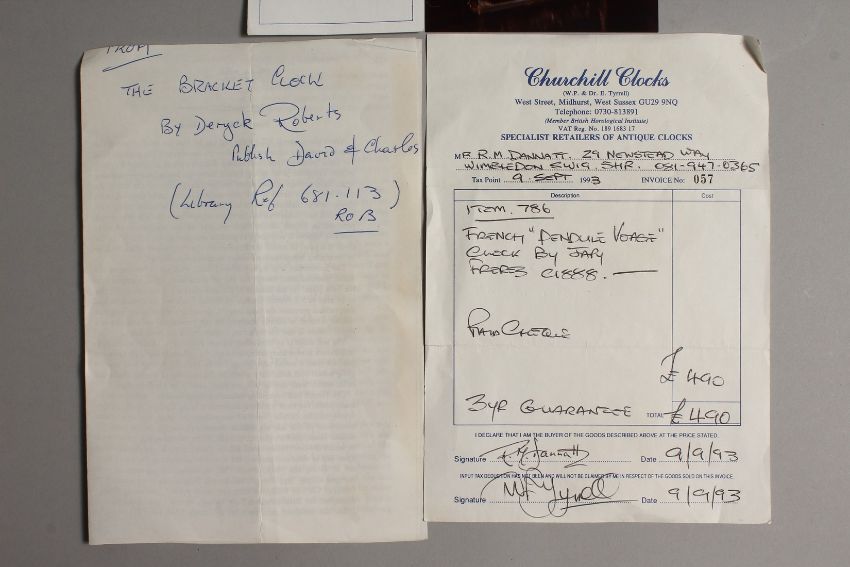 FROM
THE BRACKET CLOCK
By Deryck Roberts
Publish David & Charles
(Library Ref 681.113)
ROB
Churchill Clocks
(W.P. & Dr. E. Tyrrell)
West Street, Midhurst, West Sussex GU29 9NQ
Telephone: 0730-813891
(Member British Horological Institute)
VAT Reg. No. 189 1683 17
SPECIALIST RETAILERS OF ANTIQUE CLOCKS
MR R.M DANNATT. 29 NEWSTEAD WAY
WIMBLEDON SW19. 5HR. 081-947-0365
Tax Point 9 SEPT 1993 INVOICE No: 057
Description Cost
ITEM. 786
FRENCH "PENDULE VOAGE"
CLOCK BY JAPY
FRERES C1888.
PAID CHEQUE
£490
3YR GUARANTEE TOTAL £490
I DECLARE THAT I AM THE BUYER OF THE GOODS DESCRIBED ABOVE AT THE PRICE STATED.
Signature R.M Dannatt Date 9/9/93
INPUT TAX DEDUCTION HAS NOT BEEN AND WILL NOT BE CLAIMED BY ME IN RESPECT OF THE GOODS SOLD ON THIS INVOICE.
Signature Tyrrell Date 9/9/93